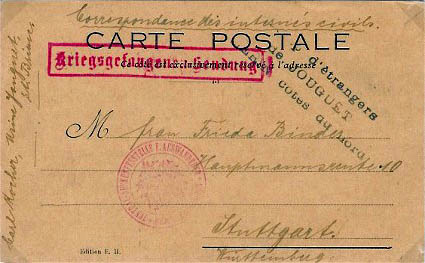 Correspondance des internés civils.
CARTE POSTALE
Kriegsgefangenen-Sendung
Ce côté est exclusivement réservé à l'adresse
d'étrangers
de JOUGUET
cotes du nord
M Frau Frieda Binder
Hauptmannsreute 10
Stuttgart.
Württemberg.
Edition E. H.